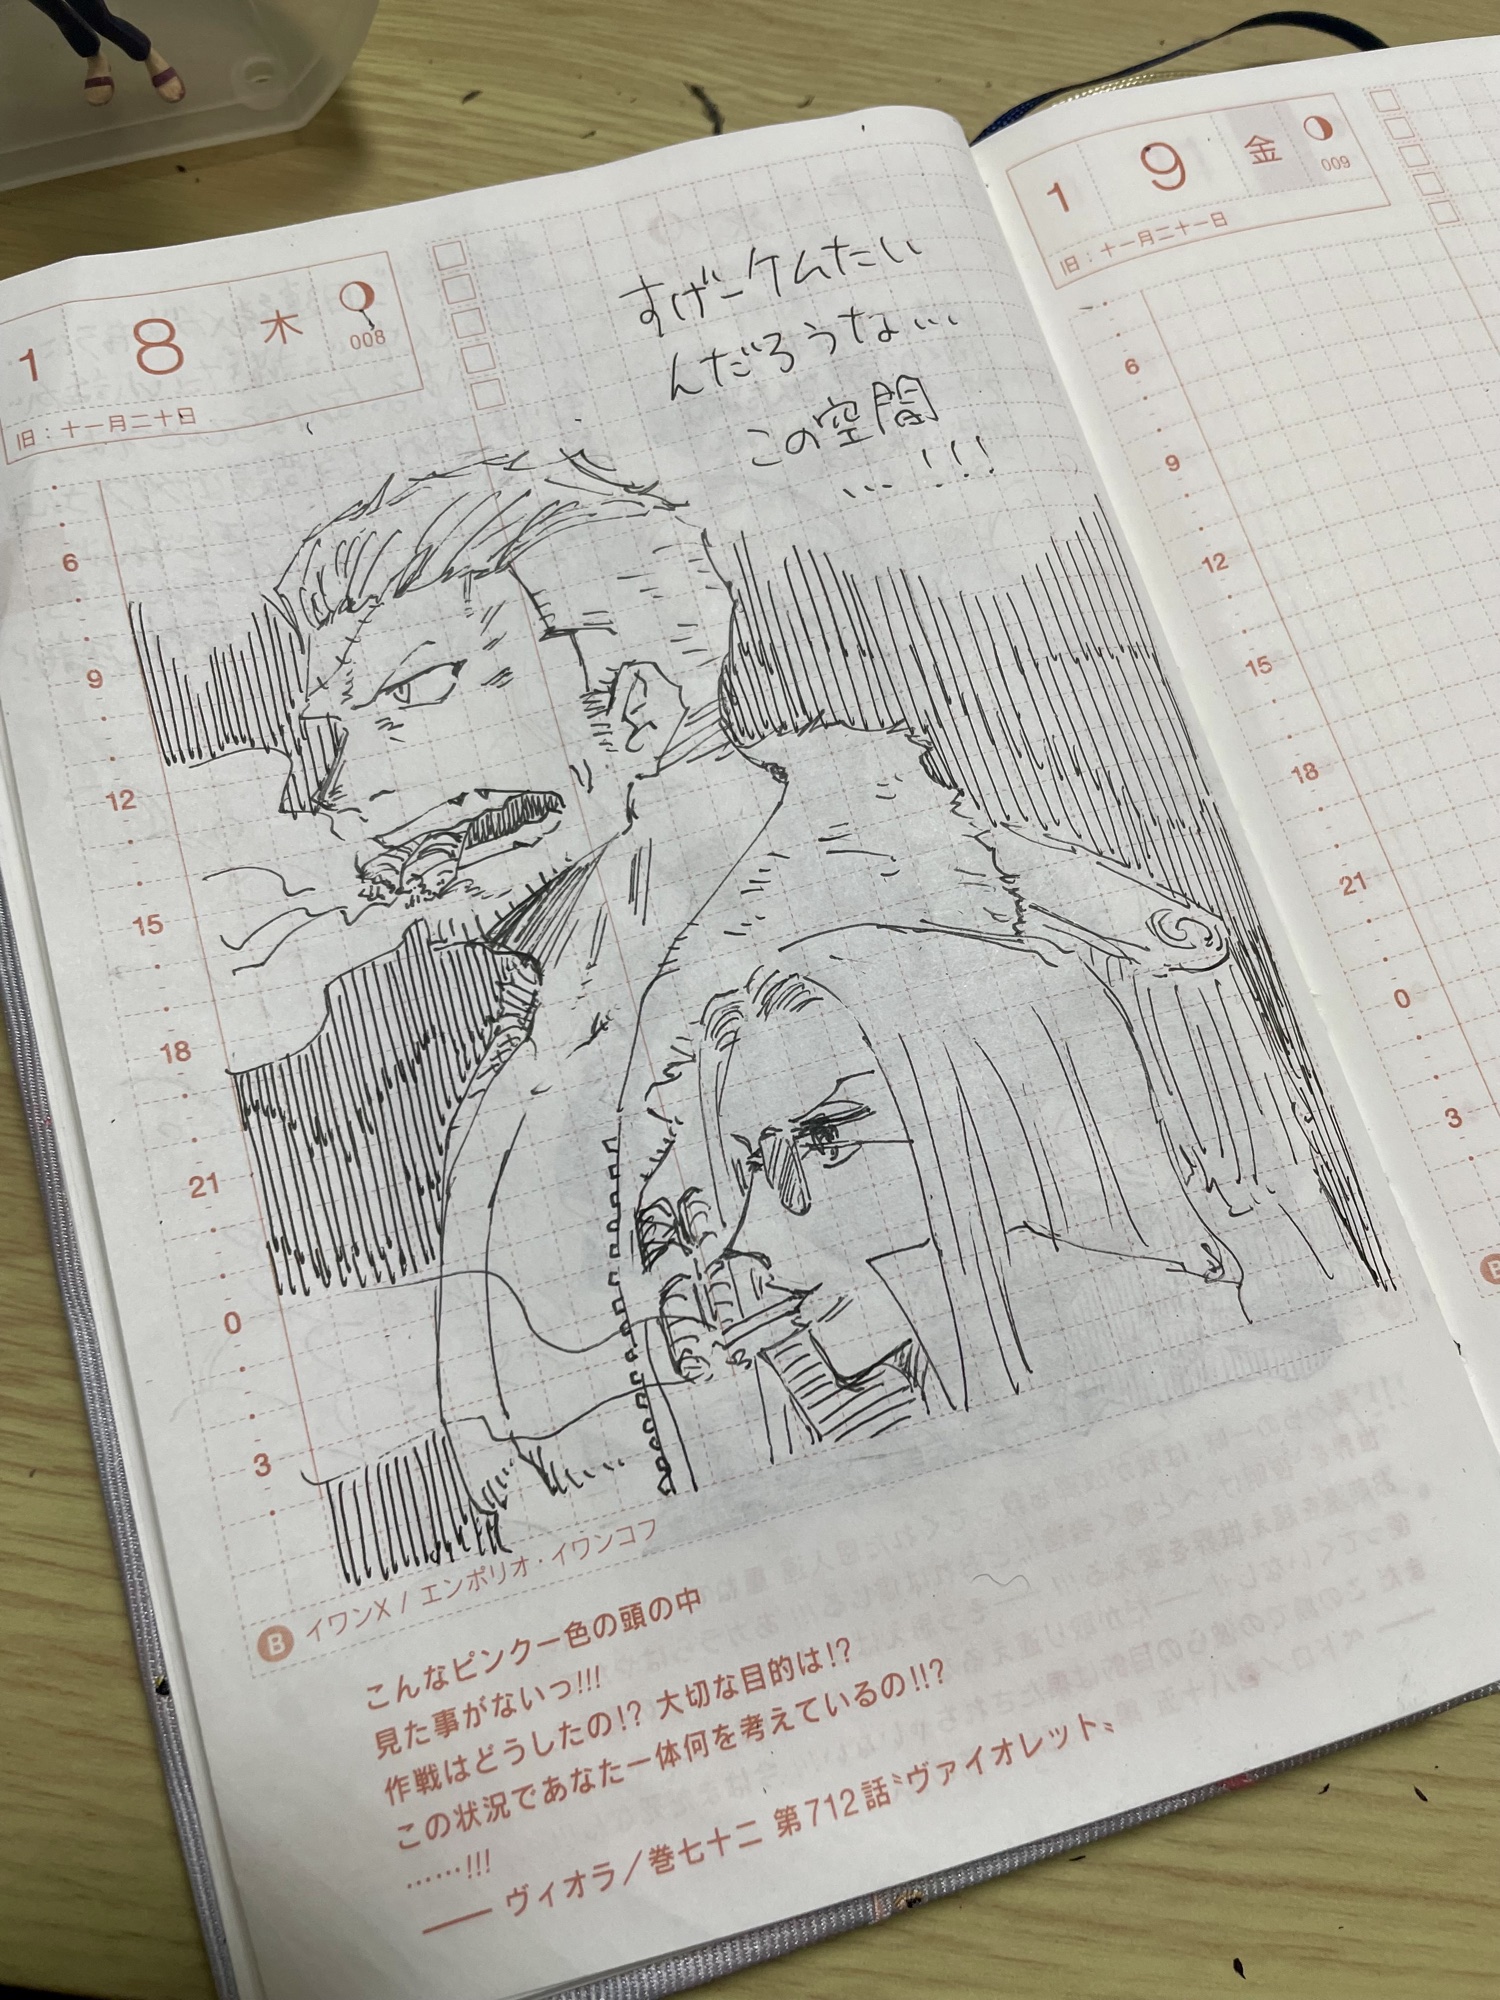 1 8 木 008
旧：十一月二十日
すげーケムたい
んだろうな…
この空間
…!!!
6
9
12
15
18
21
0
3
B イワンX / エンポリオ・イワンコフ
こんなピンク一色の頭の中
見た事がないっ!!!
作戦はどうしたの!? 大切な目的は!?
この状況であなた一体何を考えているの!!?
……!!!
── ヴィオラ／巻七十二 第712話〝ヴァイオレット〟
1 9 金 009
旧：十一月二十一日
6
9
12
15
18
21
0
3
B